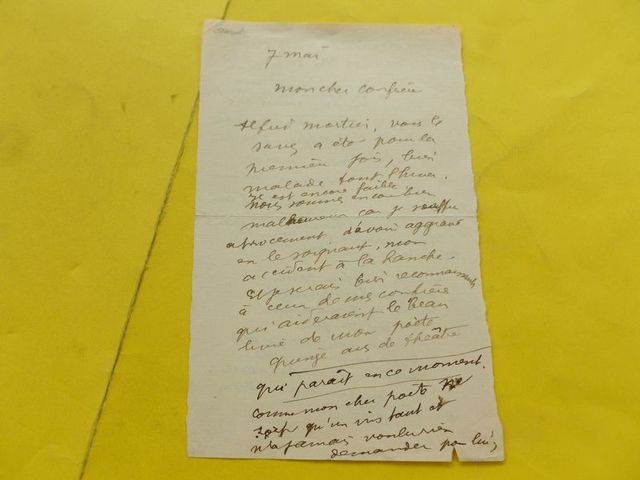 7 mai
mon cher confrère
Alfred Mortier, vous le
savez a été pour la
première fois, très
malade tout l'hiver.
Il est encore faible
nous sommes encore bien
malheureux car je souffre
atrocement d'avoir aggravé
en le soignant, mon
accident à la hanche.
et je serais très reconnaissante
à ceux de mes confrères
qui aideraient le beau
livre de mon poète
quinze ans de théâtre
qui paraît en ce moment.
comme mon cher poète ne
qu'un vivant et
n'a jamais voulu rien
demander pour lui,